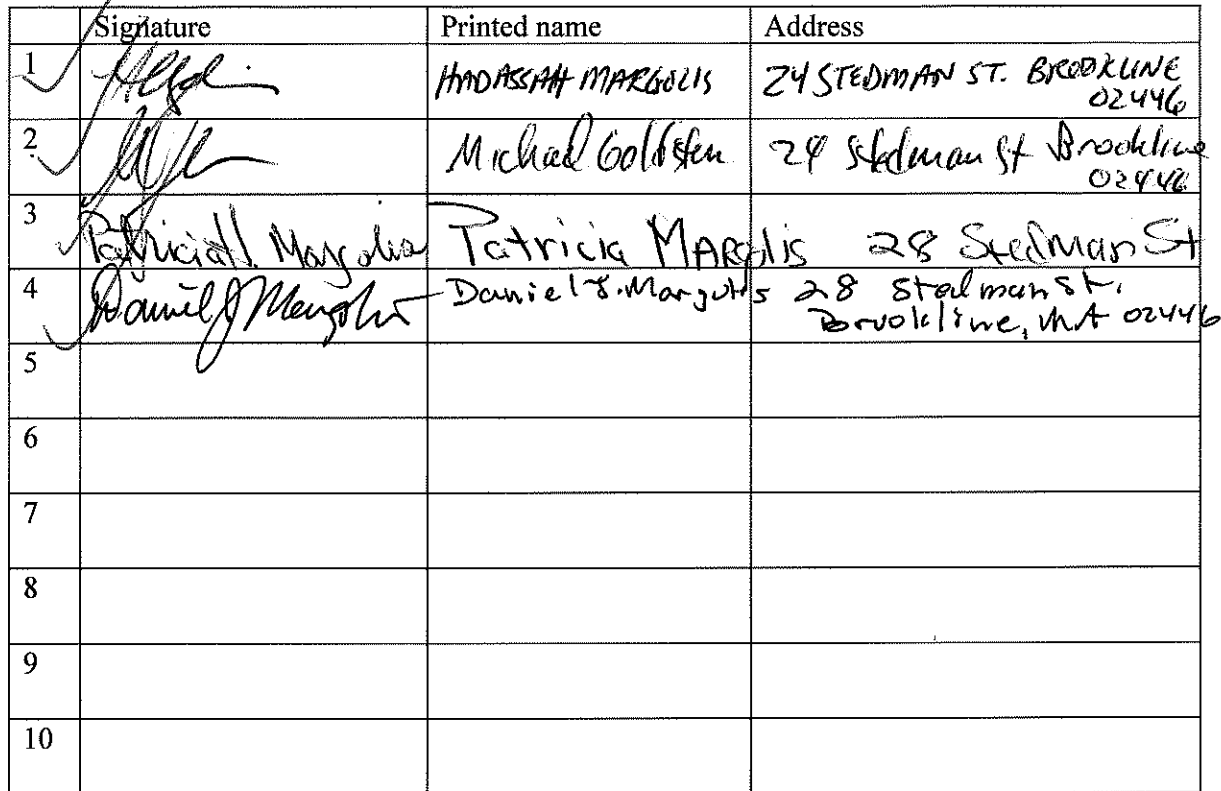 Signature Printed name Address
1 HADASSAH MARGOLIS 24 STEDMAN ST. BROOKLINE
02446
2 Michael Goldstein 24 Stedman St Brookline
02446
3 Patricia Margolis Patricia MARGOLIS 28 Stedman St
4 Daniel J Margolis Daniel J. Margolis 28 Stedman St.
Brookline, MA 02446
5
6
7
8
9
10